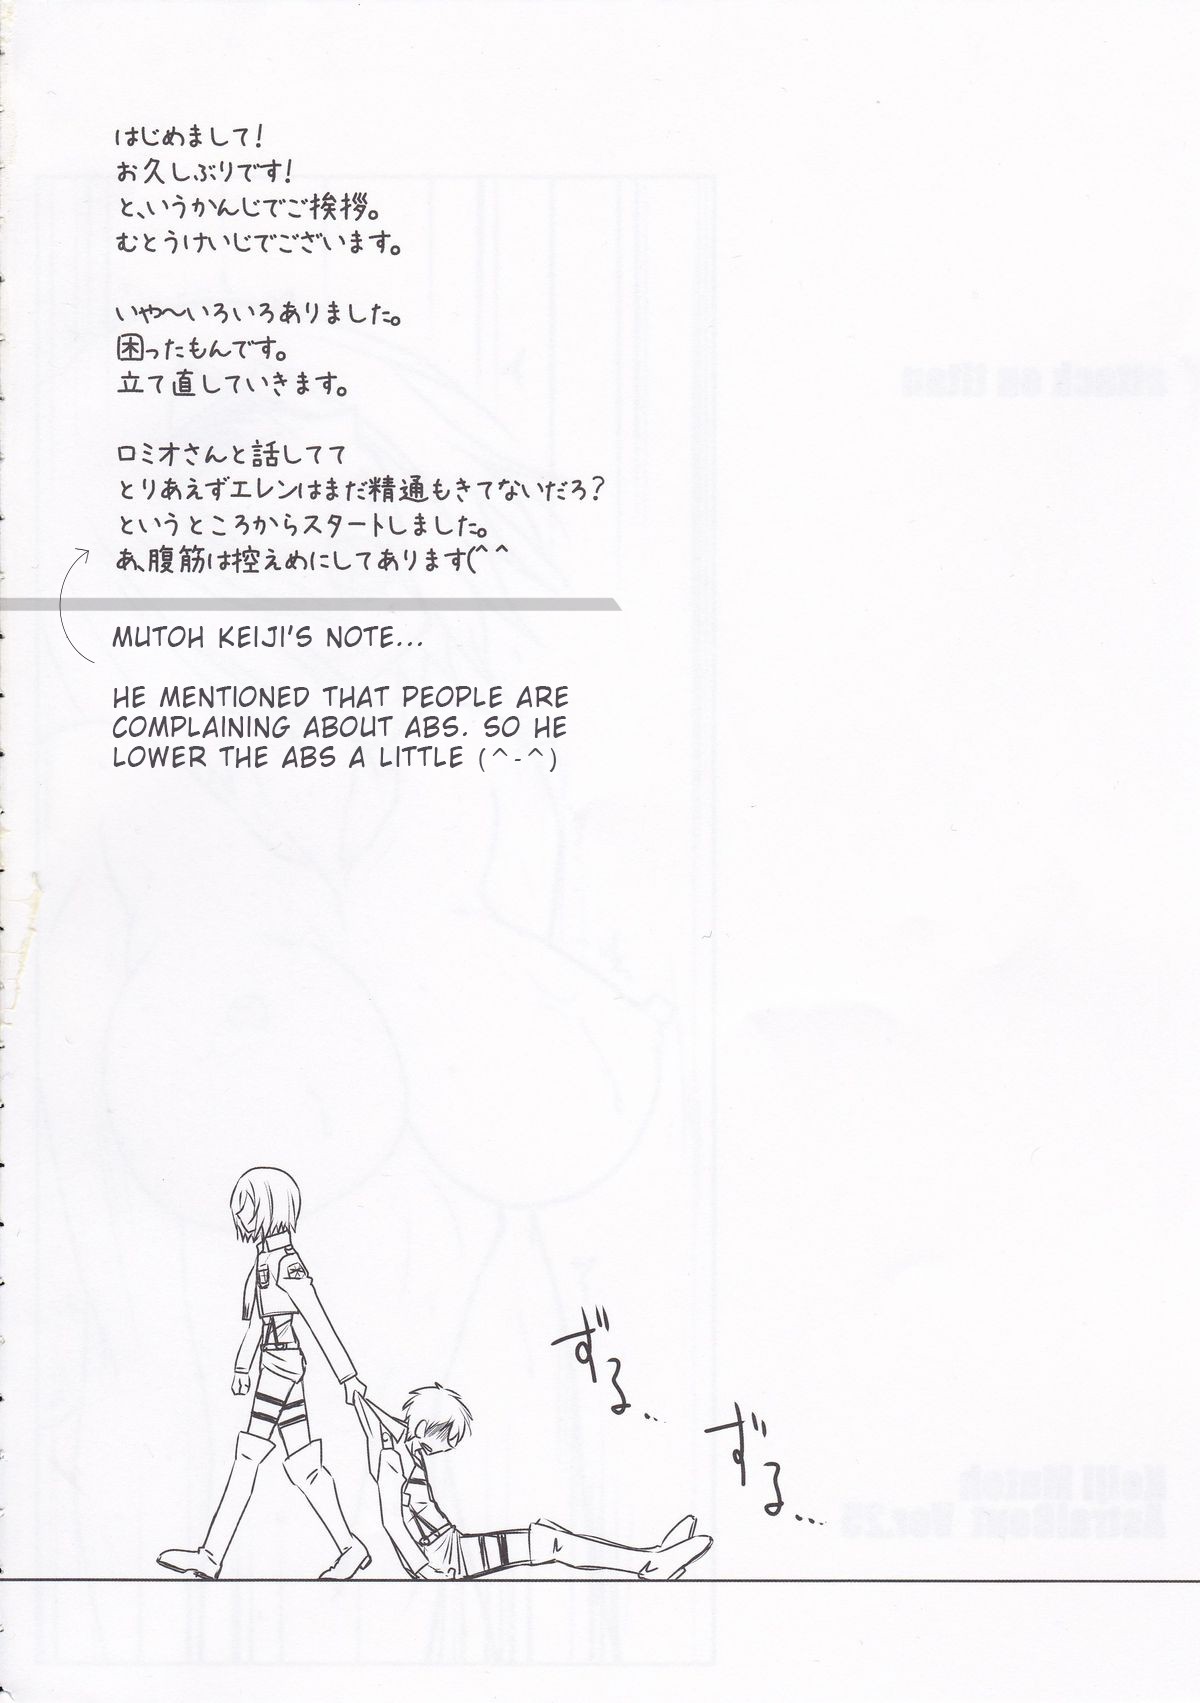 はじめまして！
お久しぶりです！
と、いうかんじでご挨拶。
むとうけいじでございます。
いや〜いろいろありました。
困ったもんです。
立て直していきます。
ロミオさんと話してて
とりあえずエレンはまだ精通もきてないだろ？
というところからスタートしました。
あ、腹筋は控えめにしてあります(^^
MUTOH KEIJI'S NOTE...
HE MENTIONED THAT PEOPLE ARE
COMPLAINING ABOUT ABS. SO HE
LOWER THE ABS A LITTLE (^-^)
ずる...
ずる...
attack on titan
Keiji Mutoh